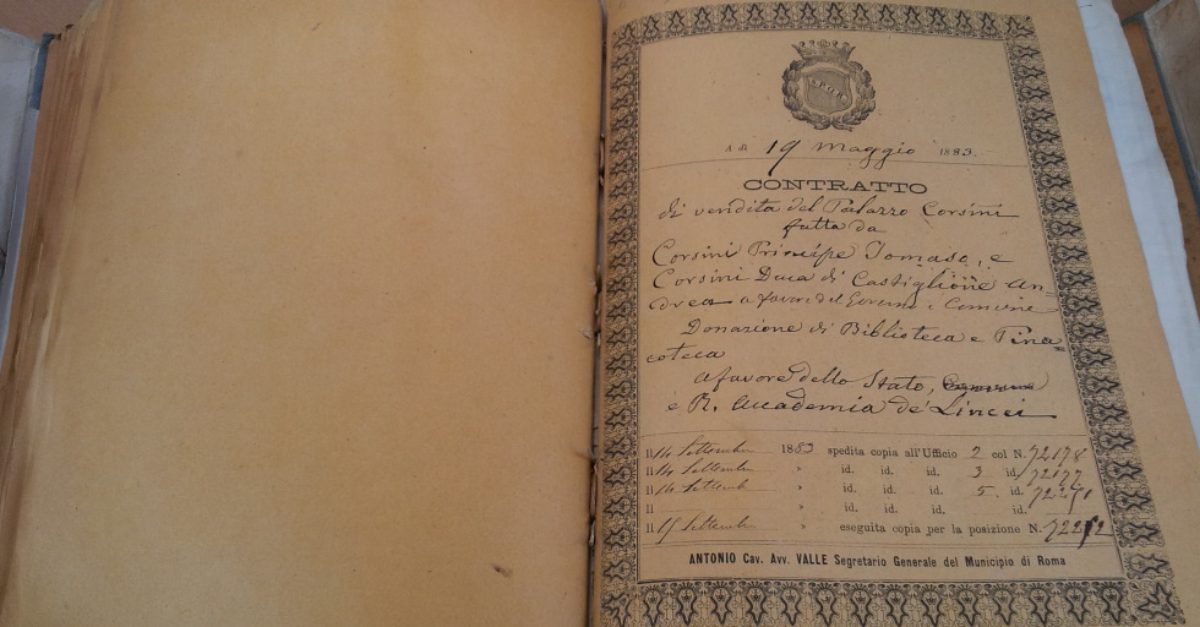 S.P.Q.R.
A dì 19 maggio 1883.
CONTRATTO
di vendita del Palazzo Corsini
fatta da
Corsini Principe Tomaso, e
Corsini Duca di Castiglione An-
drea a favore del Governo e Comune
Donazione di Biblioteca e Pina=
coteca
a favore dello Stato,
e R. Accademia de' Lincei
Il 14 Settembre 1883 spedita copia all'Ufficio 2 col N. 72178
Il 14 Settembre » id. id. id. 3 id. 72177
Il 14 Settemb » id. id. id. 5. id.
Il » id. id. id. id.
Il Settemb » eseguita copia per la posizione N.
ANTONIO Cav. Avv. VALLE Segretario Generale del Municipio di Roma